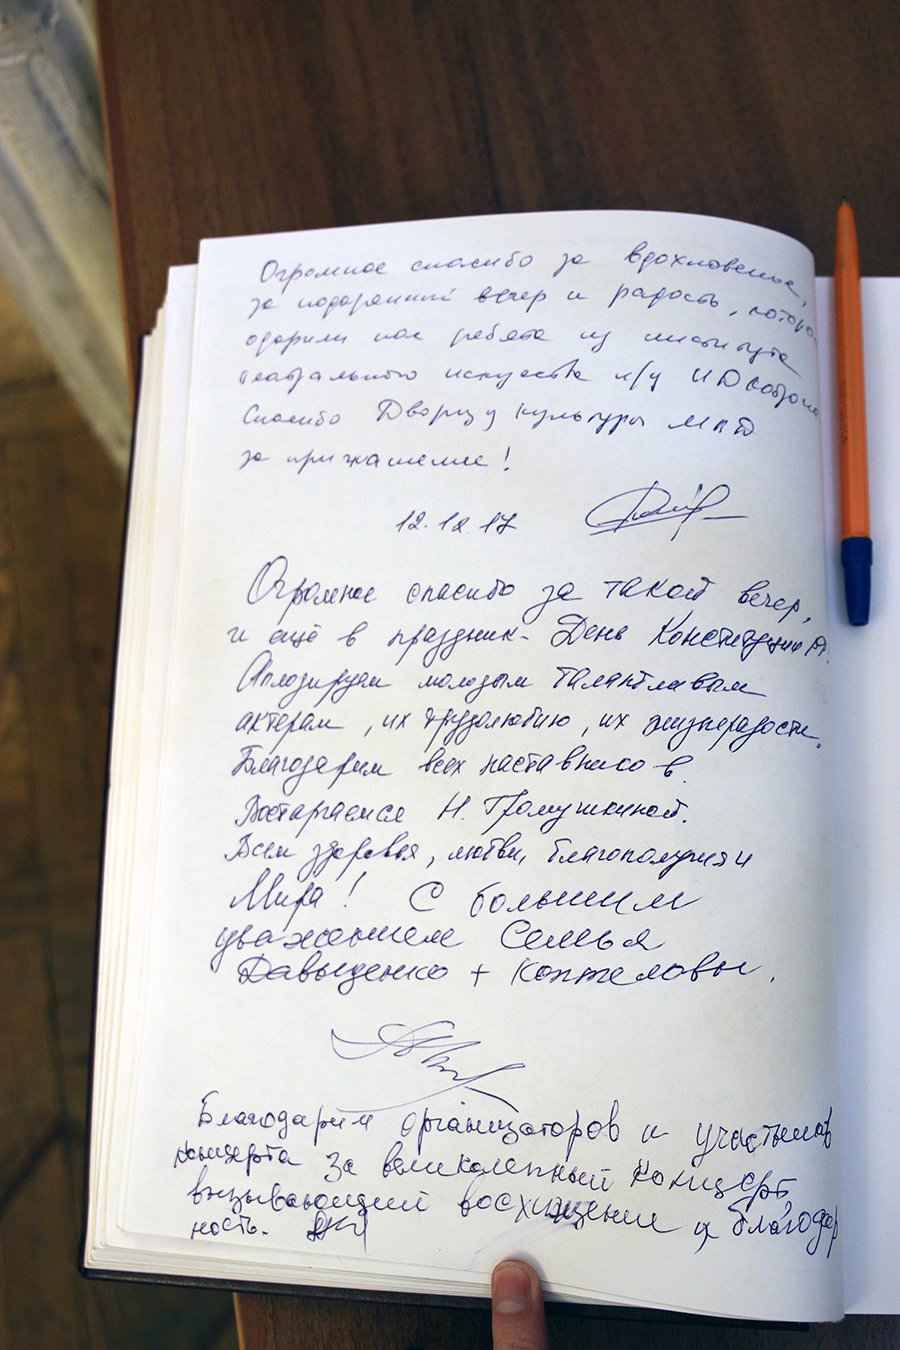 Огромное спасибо за вдохновенье,
за подаренный вечер и радость, которо
одарили нас ребята из института
театрального искусства п/у И Д Кобзона
Спасибо Дворцу культуры МПТ
за приглашение!
12.12.17
Огромное спасибо за такой вечер,
и ещё в праздник - День Конституции
Аплодируем молодым талантливым
актерам, их трудолюбию, их жизнерадости.
Благодарим всех наставников.
Н. Громушкиной.
Всем здоровья, любви, благополучия и
Мира! С большим
уважением Семья
Давыденко + Коптеловы.
Благодарим организаторов и участников
концерта за великолепный концерт
вызывающий восхищение и благодар
ность.